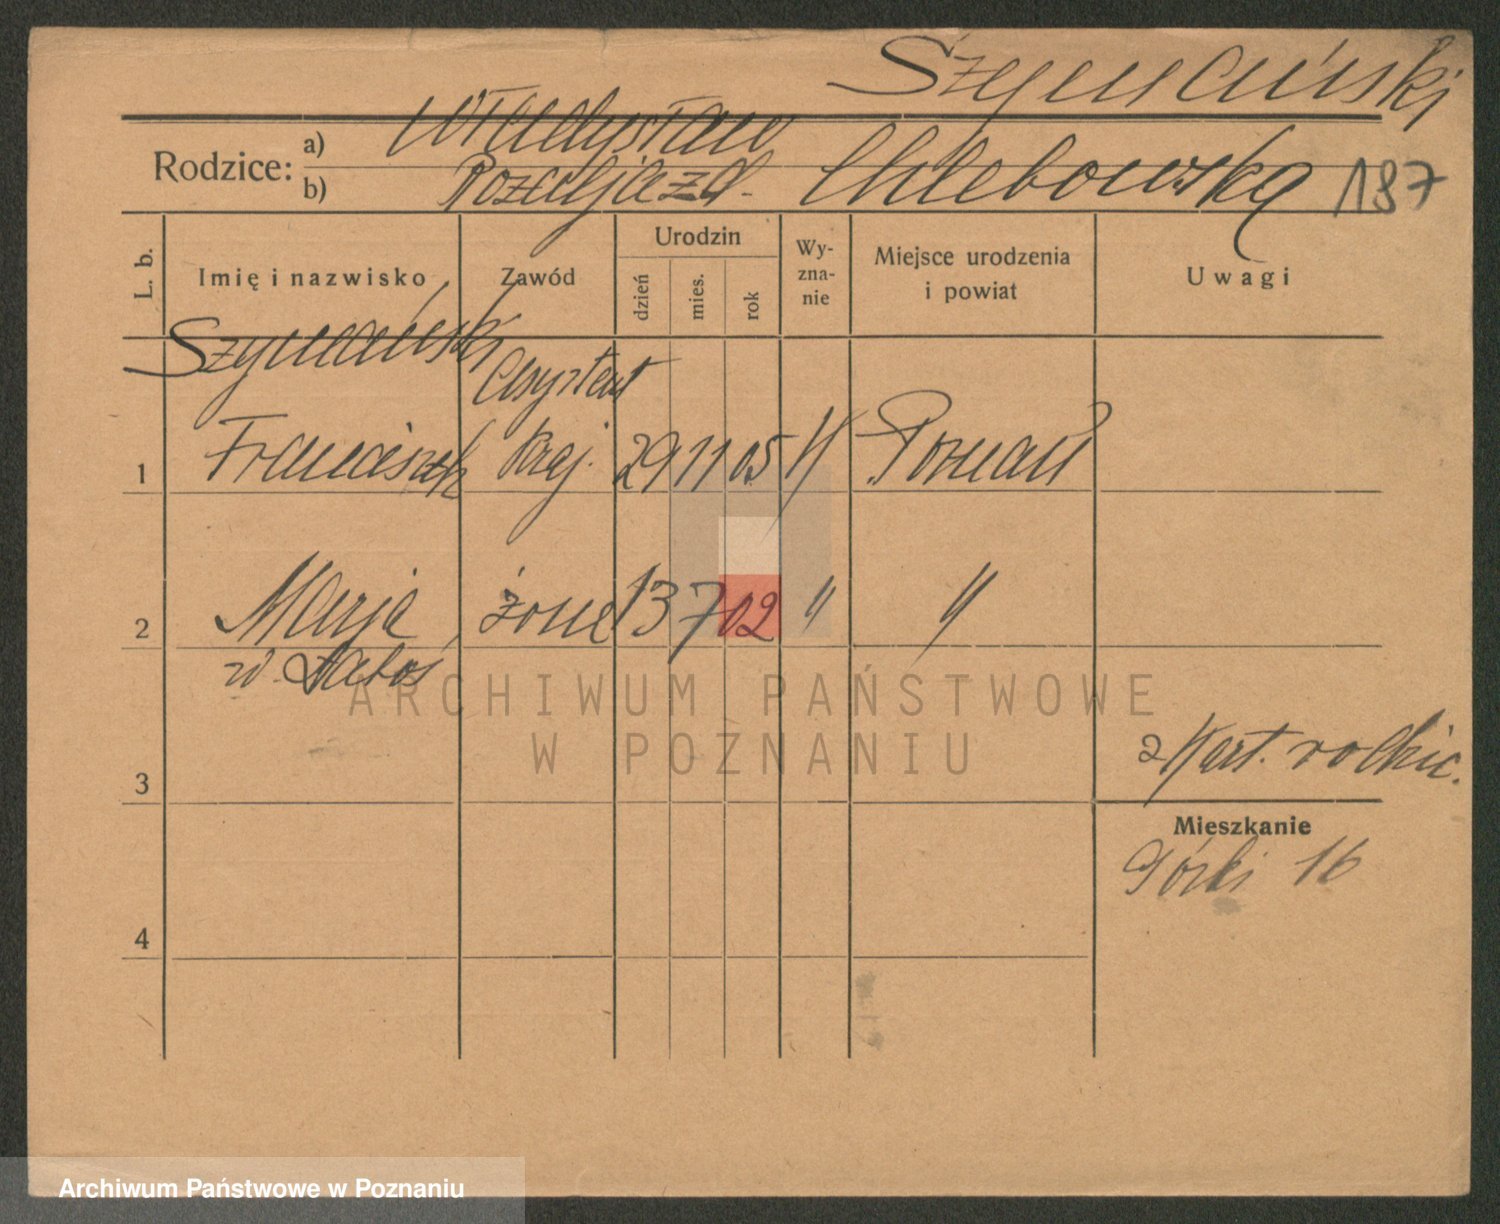 Szymański
Rodzice: a) Władysław
b) Rozalja z d. Chlebowska 187
L. b. Imię i nazwisko Zawód Urodzin dzień mies. rok Wy-zna-nie Miejsce urodzenia i powiat Uwagi
Szymański Asystent
1 Franciszek 29 11 05 Poznań
2 Marja żona 13 7 02 " "
ARCHIWUM PAŃSTWOWE
W POZNANIU
2 Kart.
3
Mieszkanie
Górki 16
4
Archiwum Państwowe w Poznaniu